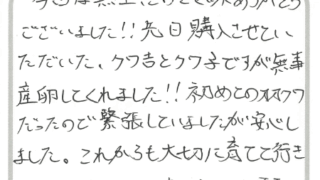 ございました!!先日購入させてい
ただいた、クワ吉とクワ子ですが無事
産卵してくれました!!初めてのオオクワ
だったので緊張していましたが安心し
ました。これからも大切に育てて行き